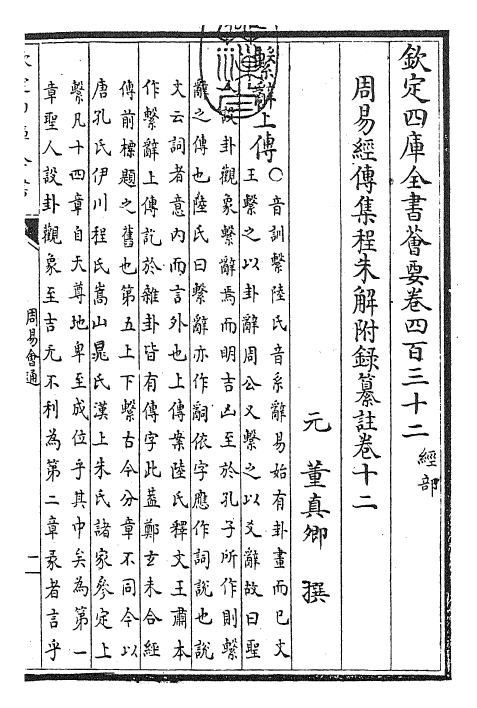 欽定四庫全書薈要卷四百三十二 經部
周易經傳集程朱解附錄纂註卷十二
元 董真卿 撰
繫辭上傳○音訓繫陸氏音系辭易始有卦畫而已文
王繫之以卦辭周公又繫之以爻辭故曰聖
人設卦觀象繫辭焉而明吉凶至於孔子所作則繫
辭之傳也陸氏曰繫辭亦作嗣依字應作詞說也說
文云詞者意內而言外也上傳案陸氏釋文王肅本
作繫辭上傳訖於雜卦皆有傳字此蓋鄭玄未合經
傳前標題之舊也第五上下繫古今分章不同今以
唐孔氏伊川程氏嵩山晁氏漢上朱氏諸家參定上
繫凡十四章自天尊地卑至成位乎其中矣為第一
章聖人設卦觀象至吉无不利為第二章彖者言乎
周易會通
一